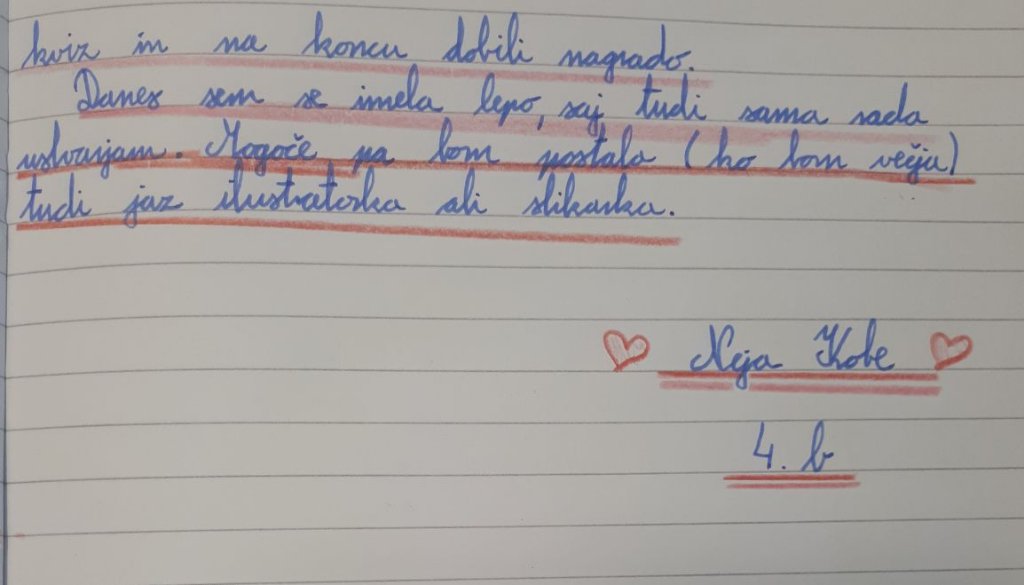 kviz in na koncu dobili nagrado.
Danes sem se imela lepo, saj tudi sama rada
ustvarjam. Mogoče pa bom postala (ko bom večja)
tudi jaz ilustratorka ali slikarka.
Neja Kobe
4. b